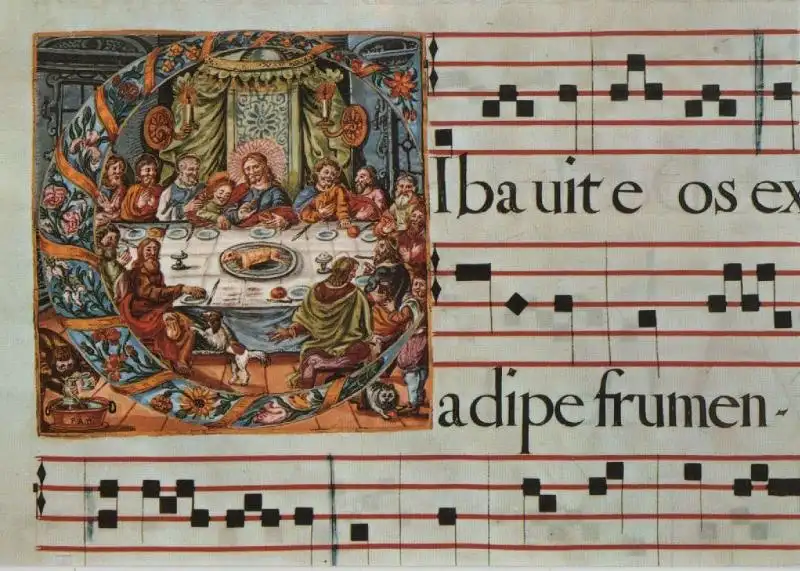 CIbauit eos ex
adipe frumen-